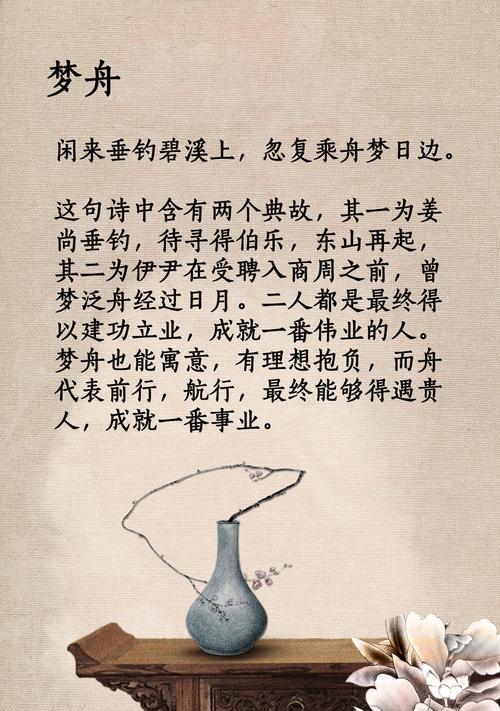 梦舟
闲来垂钓碧溪上，忽复乘舟梦日边。
这句诗中含有两个典故，其一为姜
尚垂钓，待寻得伯乐，东山再起，
其二为伊尹在受聘入商周之前，曾
梦泛舟经过日月。二人都是最终得
以建功立业，成就一番伟业的人。
梦舟也能寓意，有理想抱负，而舟
代表前行，航行，最终能够得遇贵
人，成就一番事业。